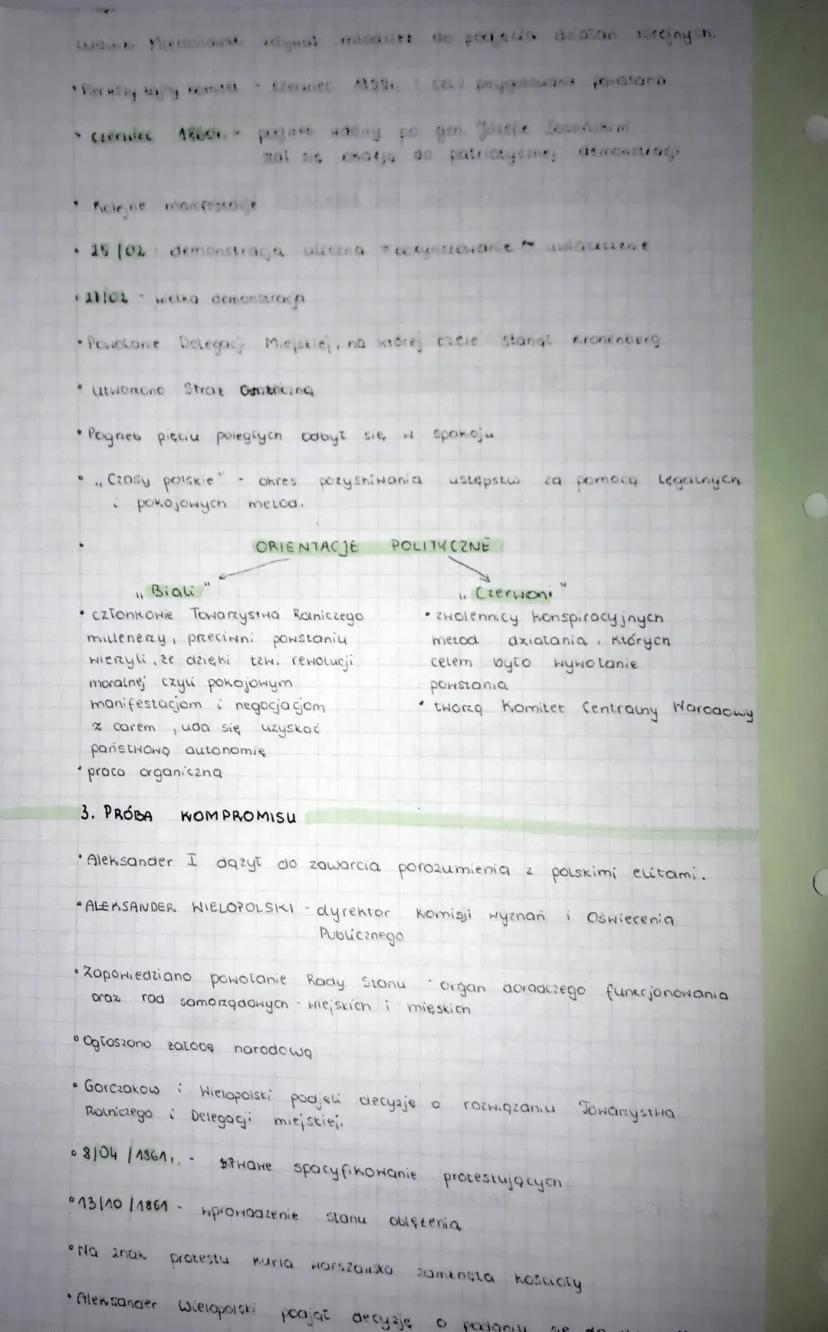 Ludwik Mierosławski do podjęcia działań
• Pierwszy tajny komitet - czerwiec powstania
• czerwiec 1860r. - pogrzeb wdowy po gen. Józefie Sowińskim
stał się okazją do patriotycznej demonstracji
• Kolejne manifestacje
• 25/02 demonstracja uliczna
• 27/02 - wielka demonstracja
• Powołanie Delegacji Miejskiej, na której czele stanął Kronenberg
• Utworzono Straż
• Pogrzeb pięciu poległych odbył się w spokoju
• „Czasy polskie" - okres pozyskiwania ustępstw za pomocą legalnych
i pokojowych metod.
• ORIENTACJE POLITYCZNE
„Biali"
• członkowie Towarzystwa Rolniczego
millenerzy, przeciwni powstaniu
wierzyli, że dzięki tzw. rewolucji
moralnej czyli pokojowym
manifestacjom i negocjacjom
z carem, uda się uzyskać
państwową autonomię
• praca organiczna
„Czerwoni"
• zwolennicy konspiracyjnych
metod działania, których
celem było wywołanie
powstania
• tworzą Komitet Centralny Narodowy
3. PRÓBA KOMPROMISU
• Aleksander I dążył do zawarcia porozumienia z polskimi elitami.
• ALEKSANDER WIELOPOLSKI - dyrektor Komisji Wyznań i Oświecenia
Publicznego
• Zapowiedziano powołanie Rady Stanu - organ doradczego funkcjonowania
oraz rad samorządowych - wiejskich i mięskich
• Ogłoszono żałobę narodową
• Gorczakow i Wielopolski podjęli decyzję o rozwiązaniu Towarzystwa
Rolniczego i Delegacji miejskiej.
• 8/04/1861r. - krwawe spacyfikowanie protestujących
• 13/10/1861 - wprowadzenie stanu oblężenia
• Na znak protestu kuria warszawska zamknęła kościoły
• Aleksander Wielopolski podjął decyzję o podaniu się do